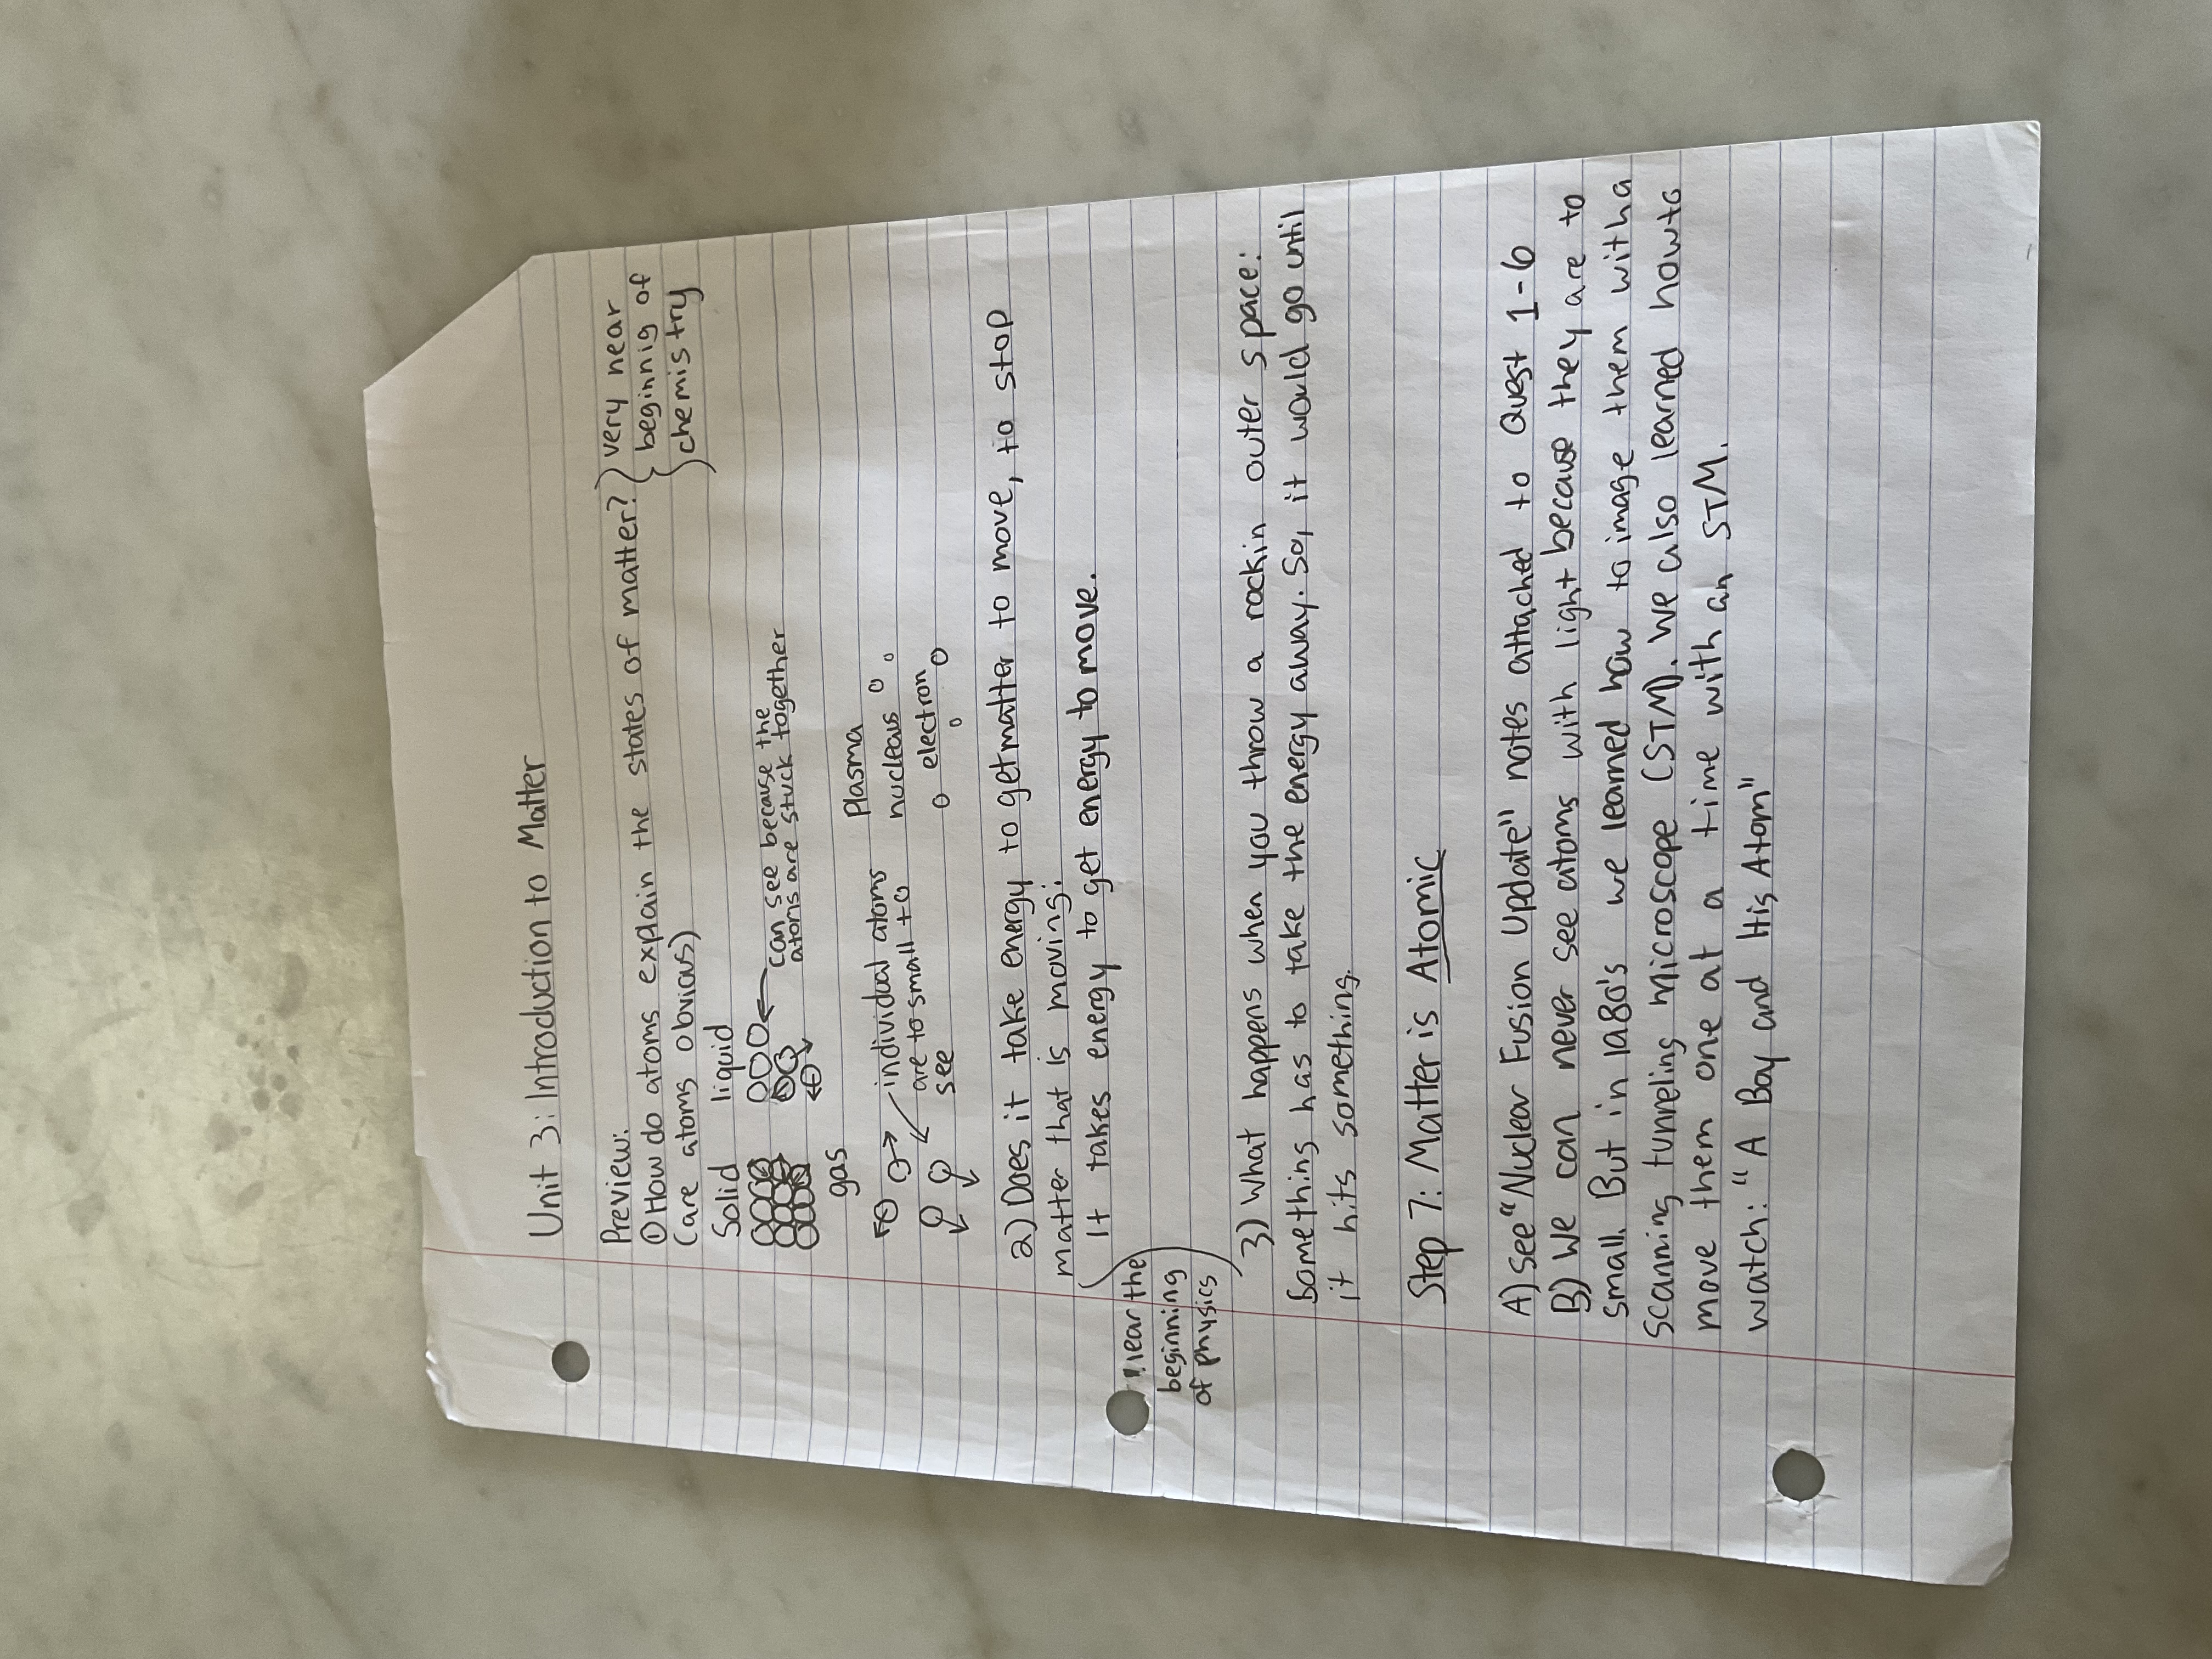 Unit 3: Introduction to Matter
Preview:
① How do atoms explain the states of matter?
(are atoms obvious)
very near
beginnig of
chemistry
Solid liquid
can see because the
atoms are stuck together
gas
individual atoms
are to small to
see
Plasma
nucleous
electron
2) Does it take energy to get matter to move, to stop
matter that is moving:
It takes energy to get energy to move.
near the
beginning
of physics
3) What happens when you throw a rock in outer space:
Something has to take the energy away. So, it would go until
it hits something.
Step 7: Matter is Atomic
A) See "Nuclear Fusion Update" notes attached to Quest 1-6
B) We can never see atoms with light because they are to
small. But in 1980's we learned how to image them with a
scanning tunneling microscope (STM). We also learned how to
move them one at a time with an STM.
watch: "A Boy and His Atom"